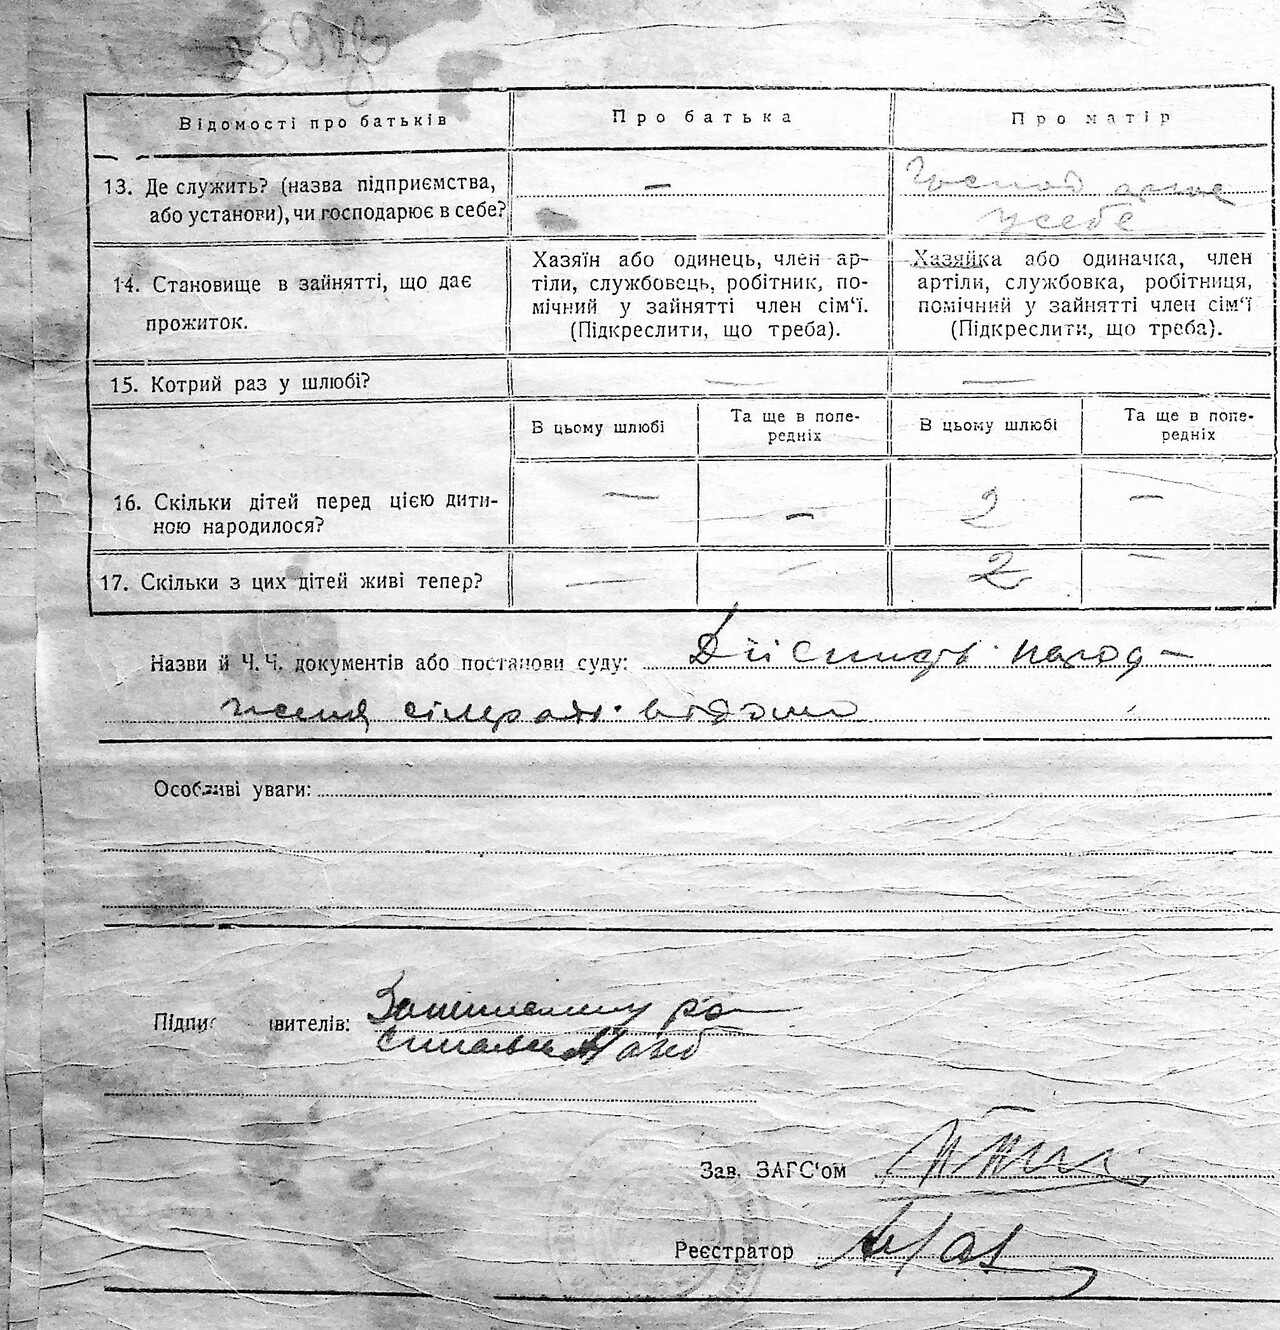 Відомості про батьків
Про батька
Про матір
13. Де служить? (назва підприємства,
або установи), чи господарює в себе?
—
Господарює
у себе
14. Становище в зайнятті, що дає
прожиток.
Хазяїн або одинець, член ар-
тіли, службовець, робітник, по-
мічний у зайнятті член сім‘ї.
(Підкреслити, що треба).
Хазяйка або одиначка, член
артіли, службовка, робітниця,
помічний у зайнятті член сім‘ї
(Підкреслити, що треба).
15. Котрий раз у шлюбі?
—
—
В цьому шлюбі
Та ще в попе-
редніх
В цьому шлюбі
Та ще в попе-
редніх
16. Скільки дітей перед цією дити-
ною народилося?
—
—
2
—
17. Скільки з цих дітей живі тепер?
—
—
2
—
Назви й Ч. Ч. документів або постанови суду: Дійсність народ-
ження сільраді відомо
Особливі уваги:
Зав. ЗАГС‘ом
Реєстратор